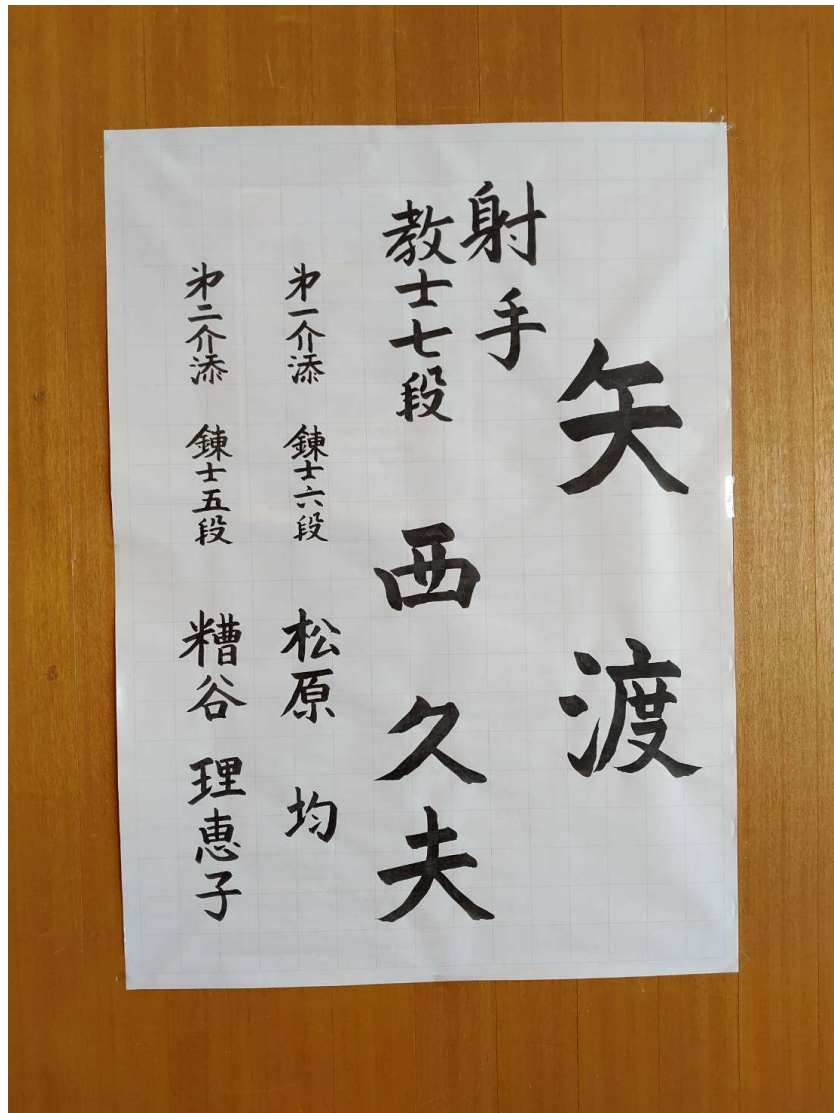 矢渡
射手
教士七段 西久夫
㐧一介添 錬士六段 松原 均
㐧二介添 錬士五段 糟谷 理恵子